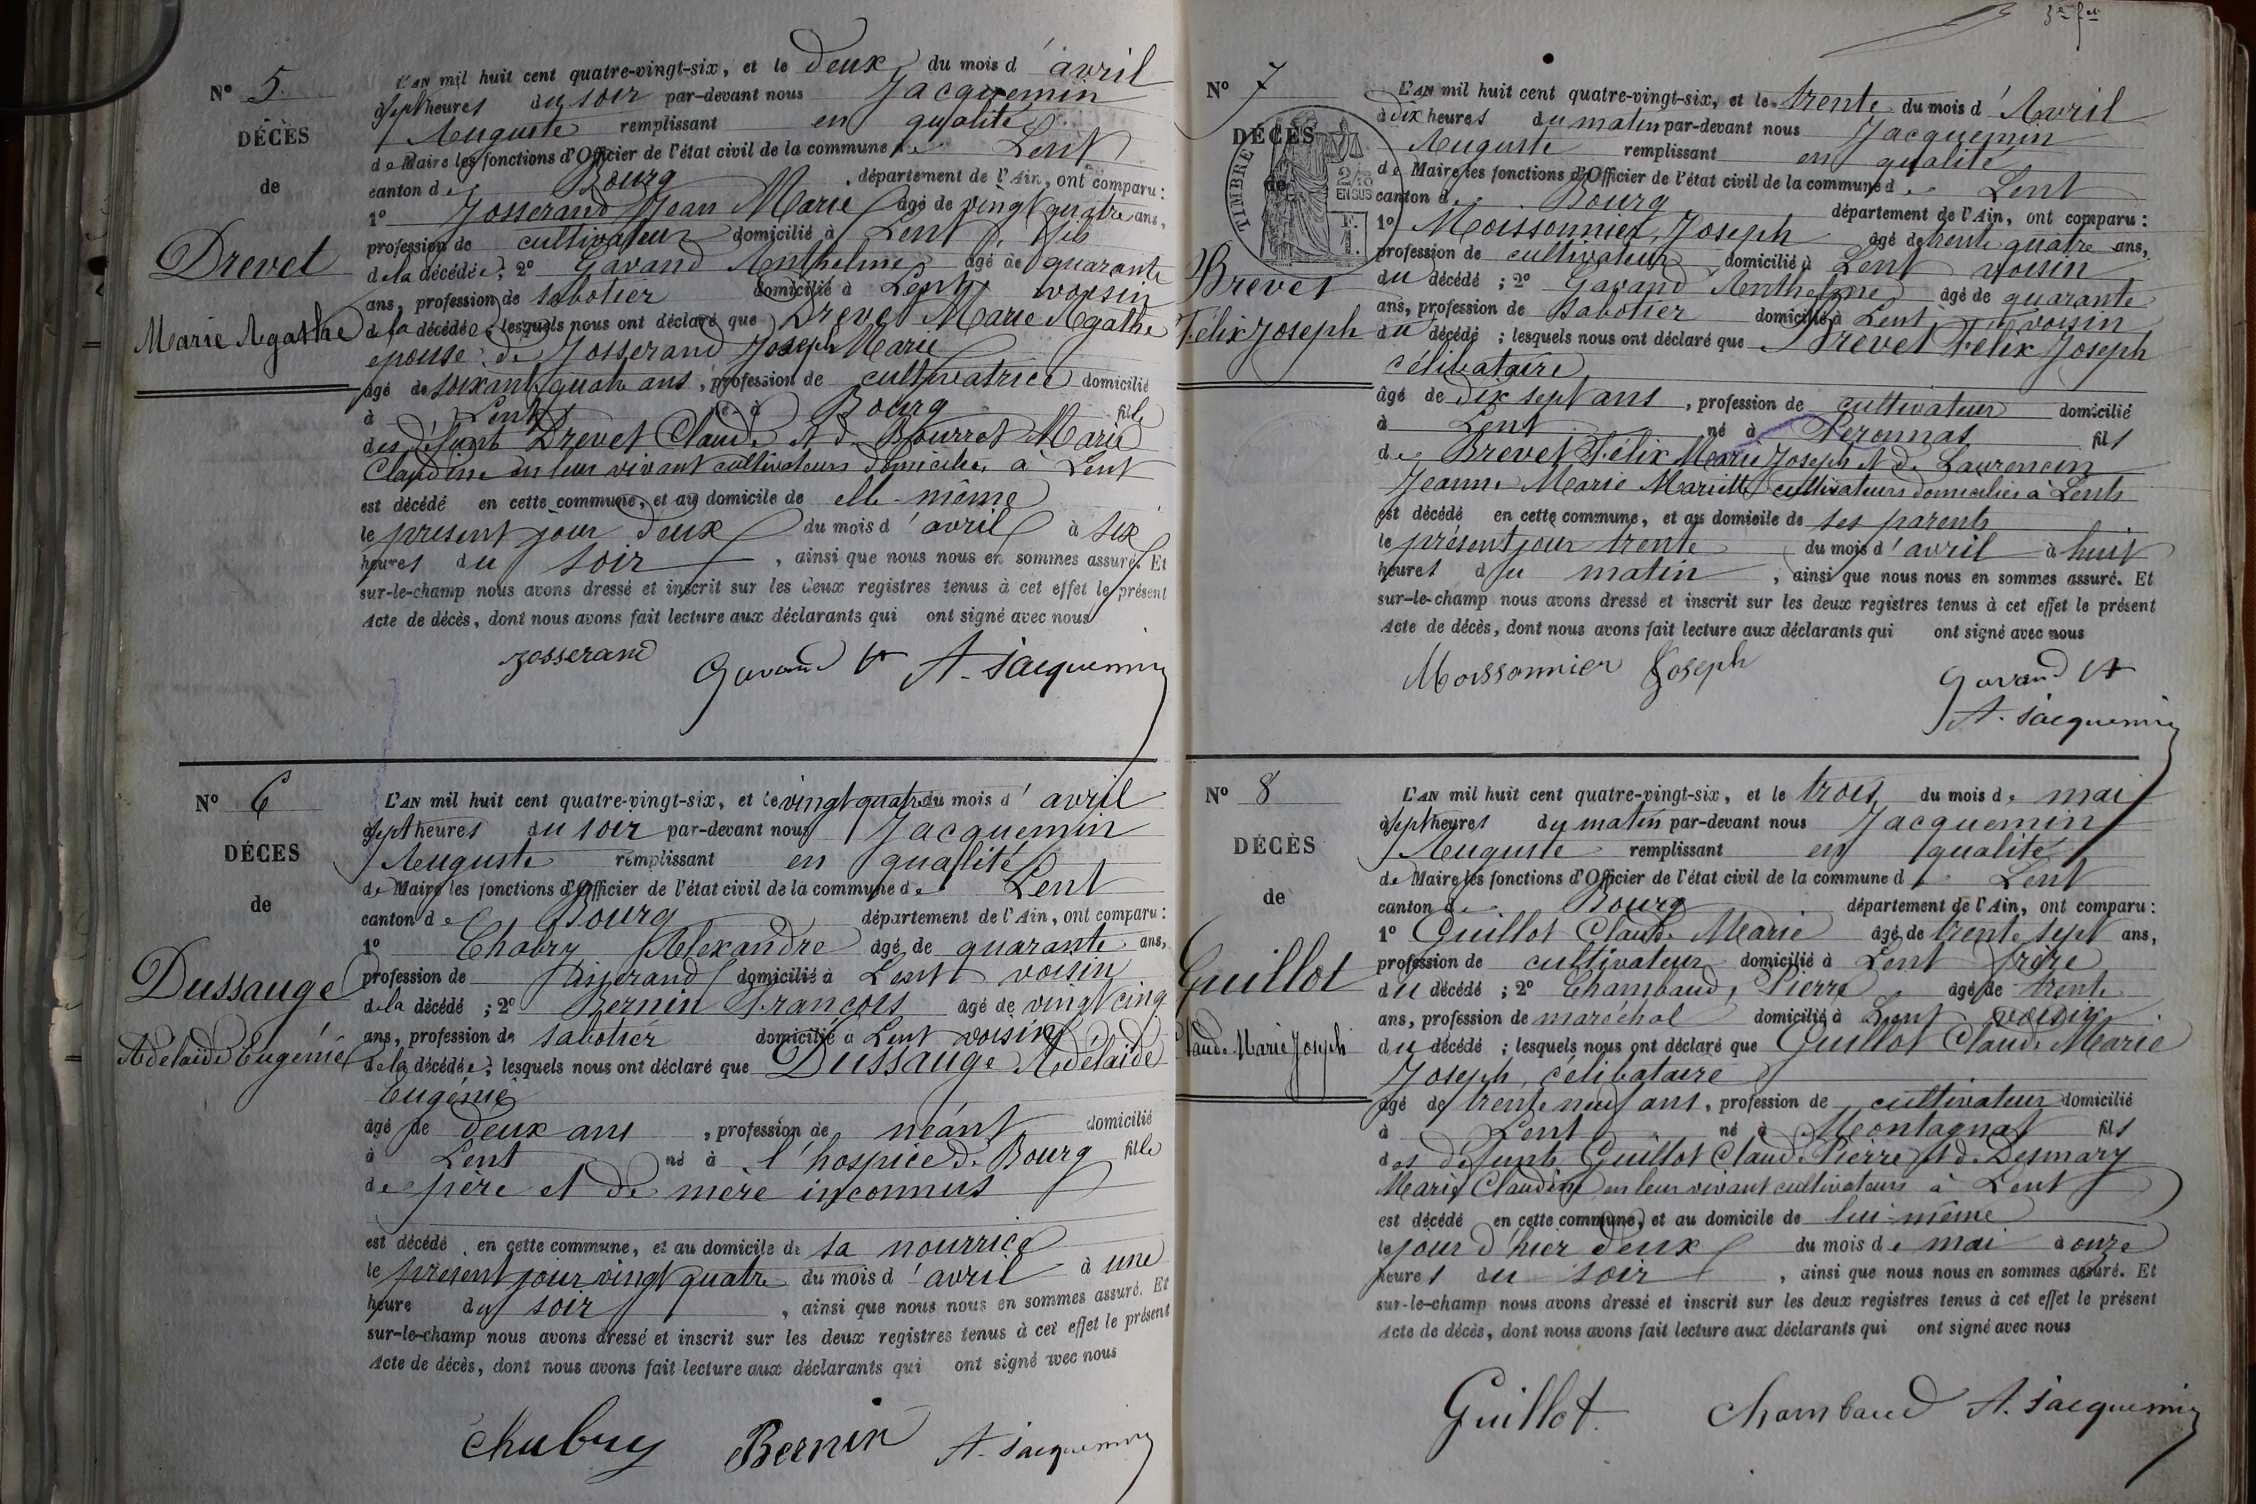 N° 5
DÉCÈS
de
Drevet
Marie Agathe
L'AN mil huit cent quatre-vingt-six, et le deux du mois d'avril
à sept heures du soir par-devant nous Jacquemin
Auguste remplissant en qualité
de Maire les fonctions d'Officier de l'état civil de la commune de Lent
canton de Bourg département de l'Ain, ont comparu :
1° Josserand Jean Marie âgé de vingt quatre ans,
profession de cultivateur domicilié à Lent, fils
de la décédée ; 2° Gavand Anthelme âgé de quarante
ans, profession de sabotier domicilié à Lent, voisin
de la décédée ; lesquels nous ont déclaré que Drevet Marie Agathe
épouse de Josserand Joseph Marie
âgé de soixante quatre ans, profession de cultivatrice domicilié
à Lent né à Bourg fille
des défunts Drevet Claude et de Bourrot Marie
Claudine en leur vivant cultivateurs domiciliés à Lent
est décédé en cette commune, et au domicile de elle-même
le présent jour deux du mois d'avril à six
heures du soir, ainsi que nous nous en sommes assuré. Et
sur-le-champ nous avons dressé et inscrit sur les deux registres tenus à cet effet le présent
Acte de décès, dont nous avons fait lecture aux déclarants qui ont signé avec nous
Josserand Gavand A A. Jacquemin
N° 6
DÉCÈS
de
Dussauge
Adélaïde Eugénie
L'AN mil huit cent quatre-vingt-six, et le vingt quatre du mois d'avril
à sept heures du soir par-devant nous Jacquemin
Auguste remplissant en qualité
de Maire les fonctions d'Officier de l'état civil de la commune de Lent
canton de Bourg département de l'Ain, ont comparu :
1° Chabry Alexandre âgé de quarante ans,
profession de domicilié à Lent voisin
de la décédé ; 2° Bernin François âgé de vingt cinq
ans, profession de sabotier domicilié à Lent voisin
de la décédée ; lesquels nous ont déclaré que Dussauge Adélaïde
Eugénie
âgé de deux ans, profession de néant domicilié
à Lent né à l'hospice de Bourg fille
de père et de mère inconnus
est décédé en cette commune, et au domicile de sa nourrice
le présent jour vingt quatre du mois d'avril à une
heure du soir, ainsi que nous nous en sommes assuré. Et
sur-le-champ nous avons dressé et inscrit sur les deux registres tenus à cet effet le présent
Acte de décès, dont nous avons fait lecture aux déclarants qui ont signé avec nous
Chabry Bernin A. Jacquemin
N° 7
DÉCÈS
de
Brevet
Félix Joseph
TIMBRE
2/10
EN SUS
L'AN mil huit cent quatre-vingt-six, et le trente du mois d'Avril
à dix heures du matin par-devant nous Jacquemin
Auguste remplissant en qualité
de Maire les fonctions d'Officier de l'état civil de la commune de Lent
canton de Bourg département de l'Ain, ont comparu :
1° Moissonnier Joseph âgé de trente quatre ans,
profession de cultivateur domicilié à Lent voisin
du décédé ; 2° Gavand Anthelme âgé de quarante
ans, profession de sabotier domicilié à Lent voisin
du décédé ; lesquels nous ont déclaré que Brevet Félix Joseph
célibataire
âgé de dix sept ans, profession de cultivateur domicilié
à Lent né à Peronnas fils
de Brevet Félix Marie Joseph et de Laurencin
Jeanne Marie Mariette cultivateurs domiciliés à Lent
est décédé en cette commune, et au domicile de ses parents
le présent jour trente du mois d'avril à huit
heures du matin, ainsi que nous nous en sommes assuré. Et
sur-le-champ nous avons dressé et inscrit sur les deux registres tenus à cet effet le présent
Acte de décès, dont nous avons fait lecture aux déclarants qui ont signé avec nous
Moissonnier Joseph Gavand A
A. Jacquemin
N° 8
DÉCÈS
de
Guillot
Claude Marie Joseph
L'AN mil huit cent quatre-vingt-six, et le trois du mois de mai
à sept heures du matin par-devant nous Jacquemin
Auguste remplissant en qualité
de Maire les fonctions d'Officier de l'état civil de la commune de Lent
canton de Bourg département de l'Ain, ont comparu :
1° Guillot Claude Marie âgé de trente sept ans,
profession de cultivateur domicilié à Lent frère
du décédé ; 2° Chambaud, Pierre âgé de trente
ans, profession de maréchal domicilié à Lent voisin
du décédé ; lesquels nous ont déclaré que Guillot Claude Marie
Joseph, célibataire
âgé de trente neuf ans, profession de cultivateur domicilié
à Lent né à Montagnat fils
des défunts Guillot Claude Pierre et de Desmary
Marie Claudine en leur vivant cultivateurs à Lent
est décédé en cette commune, et au domicile de lui-même
le jour d'hier deux du mois de mai à onze
heures du soir, ainsi que nous nous en sommes assuré. Et
sur-le-champ nous avons dressé et inscrit sur les deux registres tenus à cet effet le présent
Acte de décès, dont nous avons fait lecture aux déclarants qui ont signé avec nous
Guillot. Chambaud A. Jacquemin